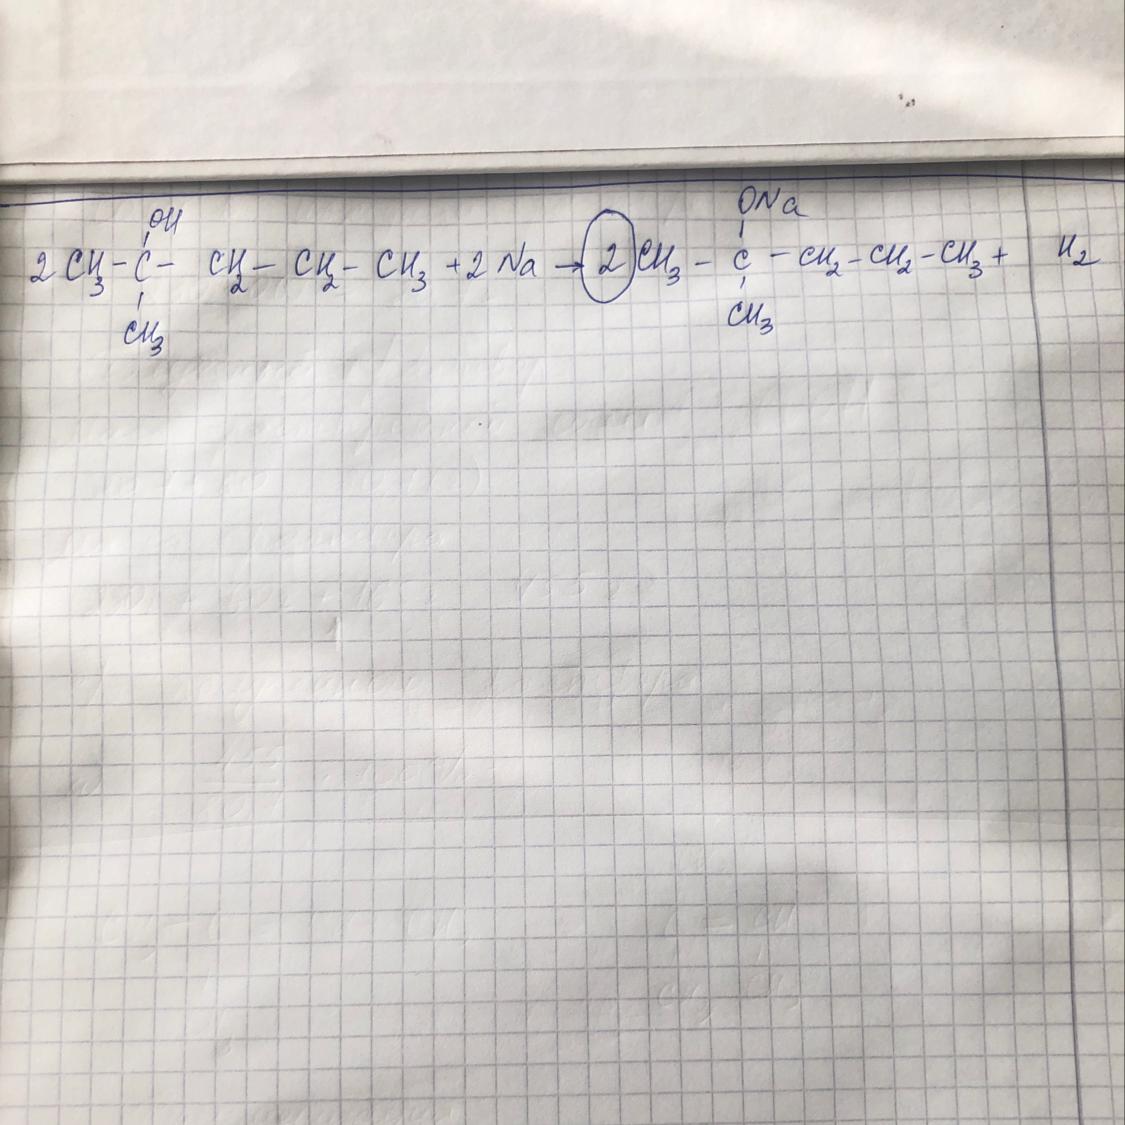 OH ONa
2 CH₃ - C - CH₂ - CH₂ - CH₃ + 2 Na → 2 CH₃ - C - CH₂ - CH₂ - CH₃ + H₂
CH₃ CH₃